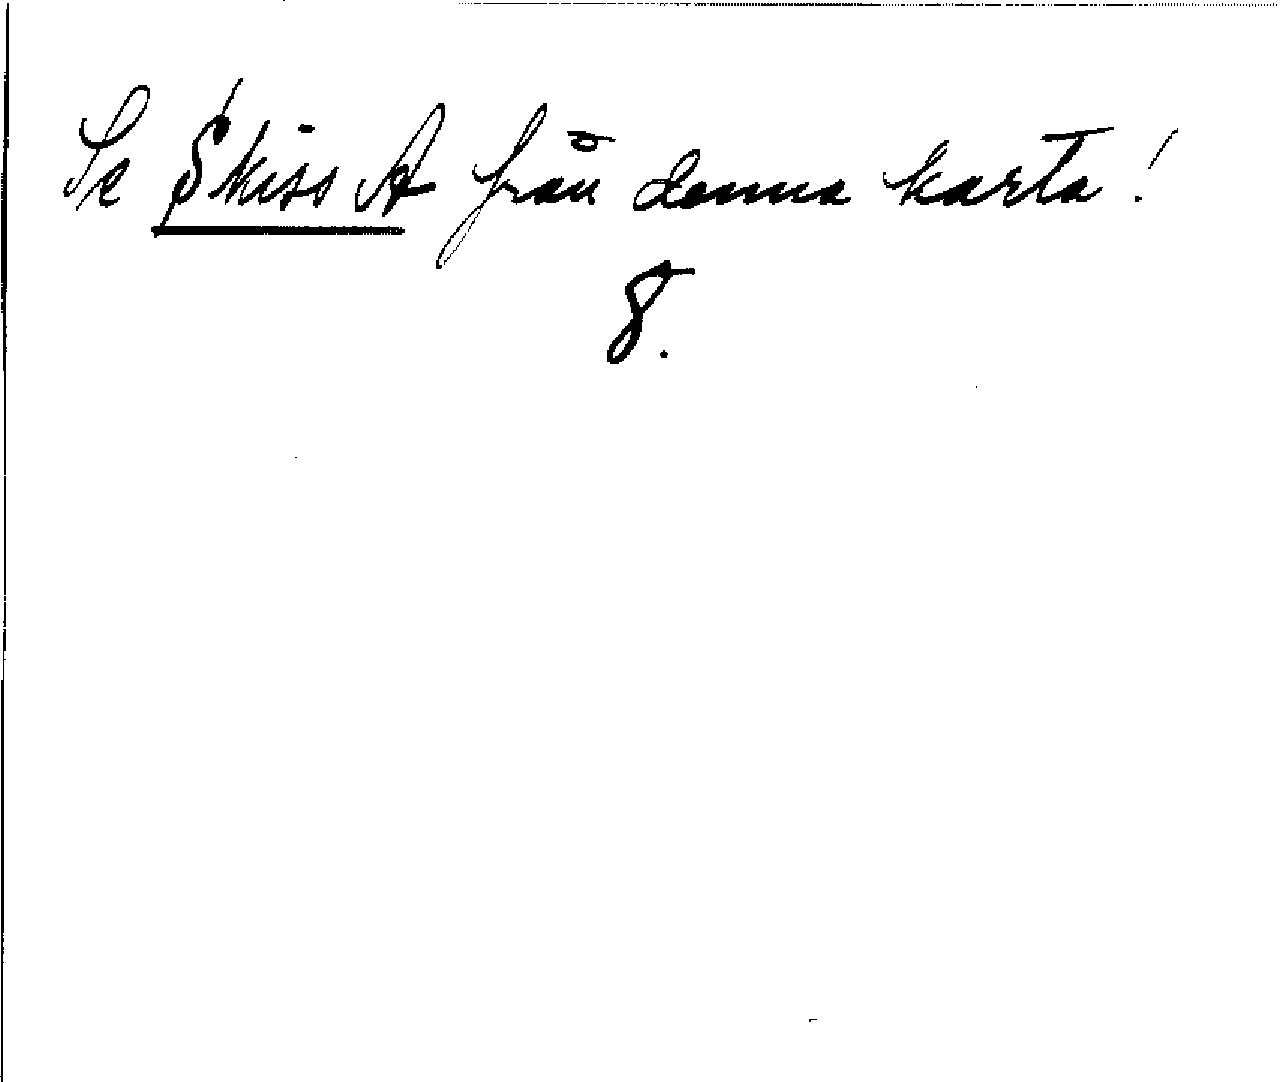 Se Skiss A från denna karta!
8.